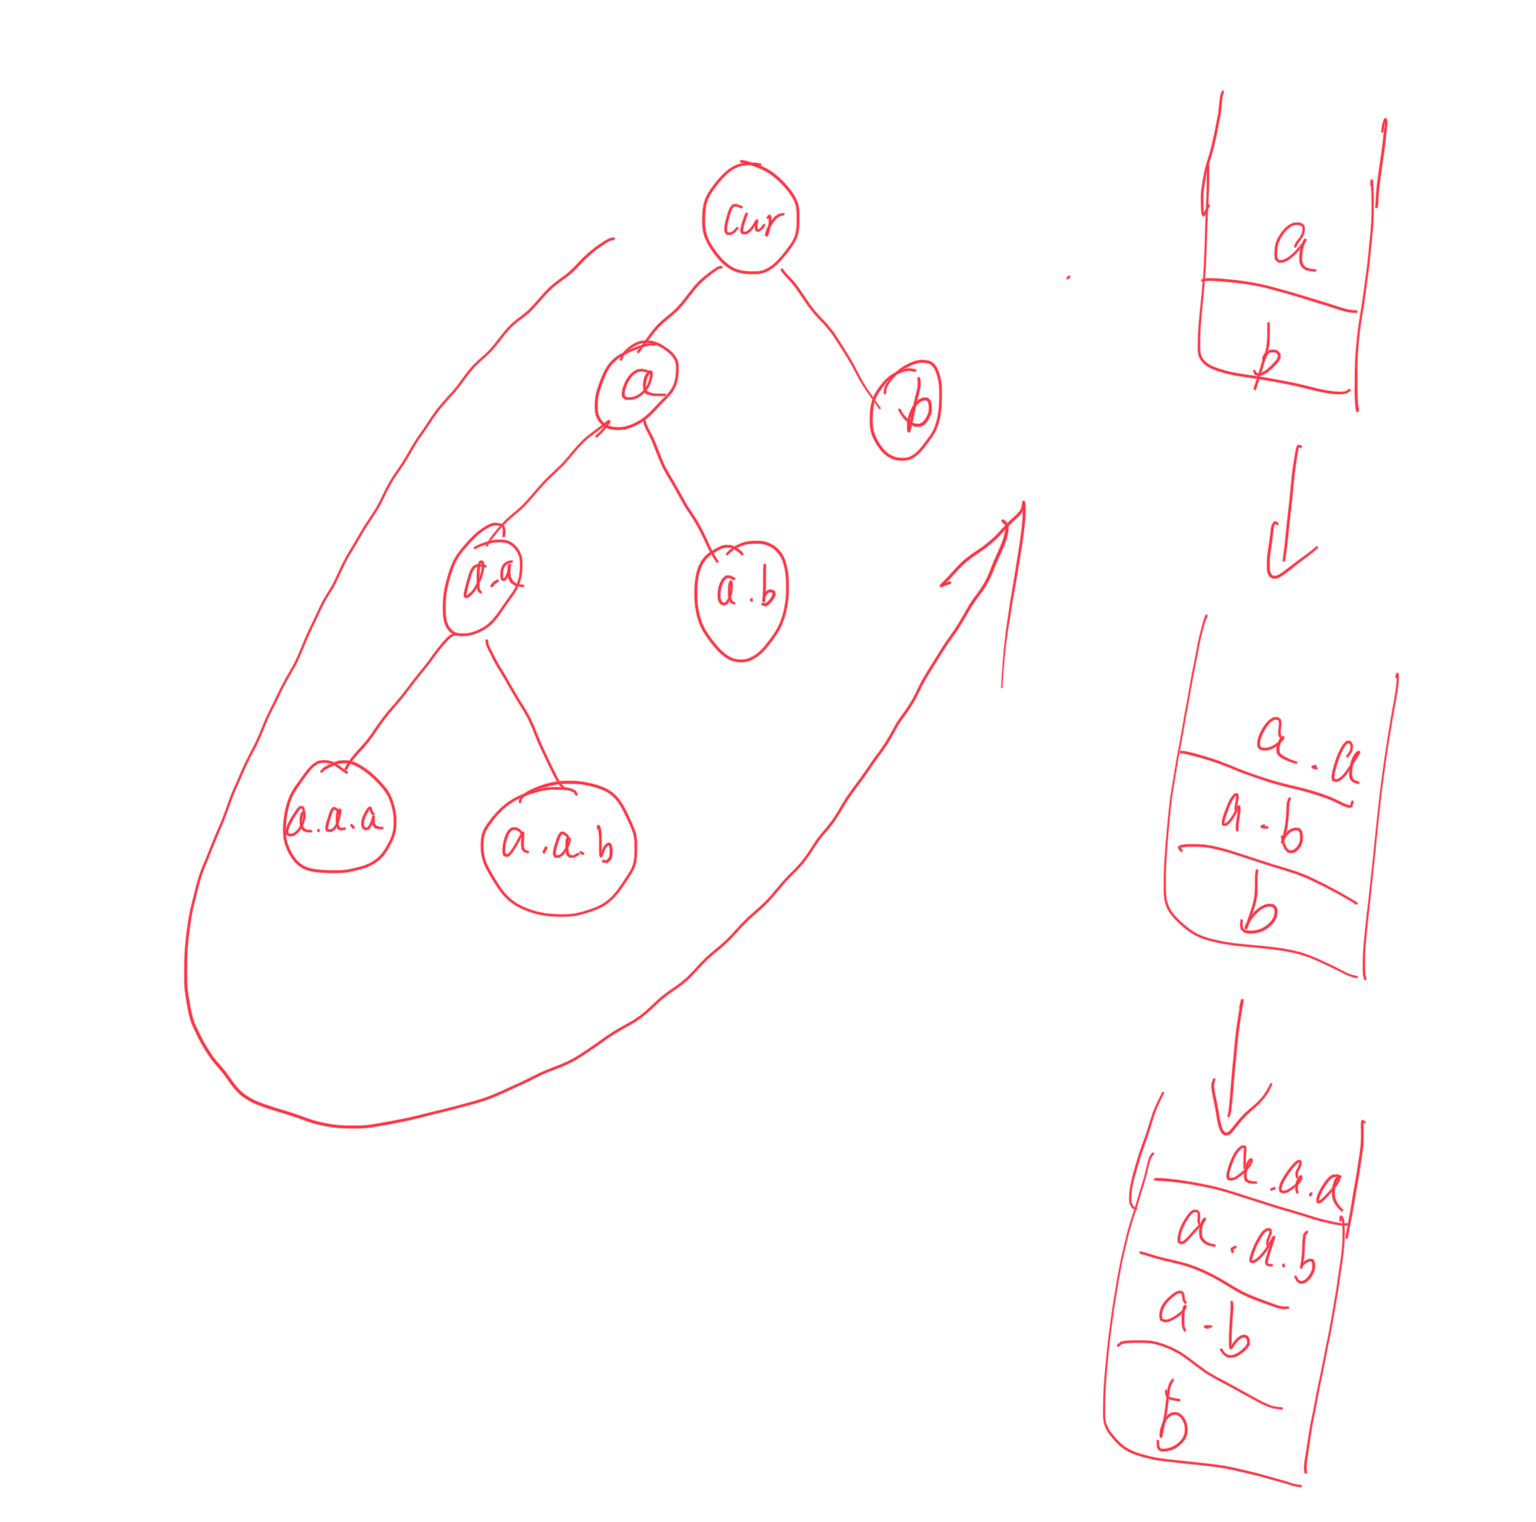 cur
a
b
a.a
a.b
a.a.a
a.a.b
a
b
a.a
a.b
b
a.a.a
a.a.b
a.b
b